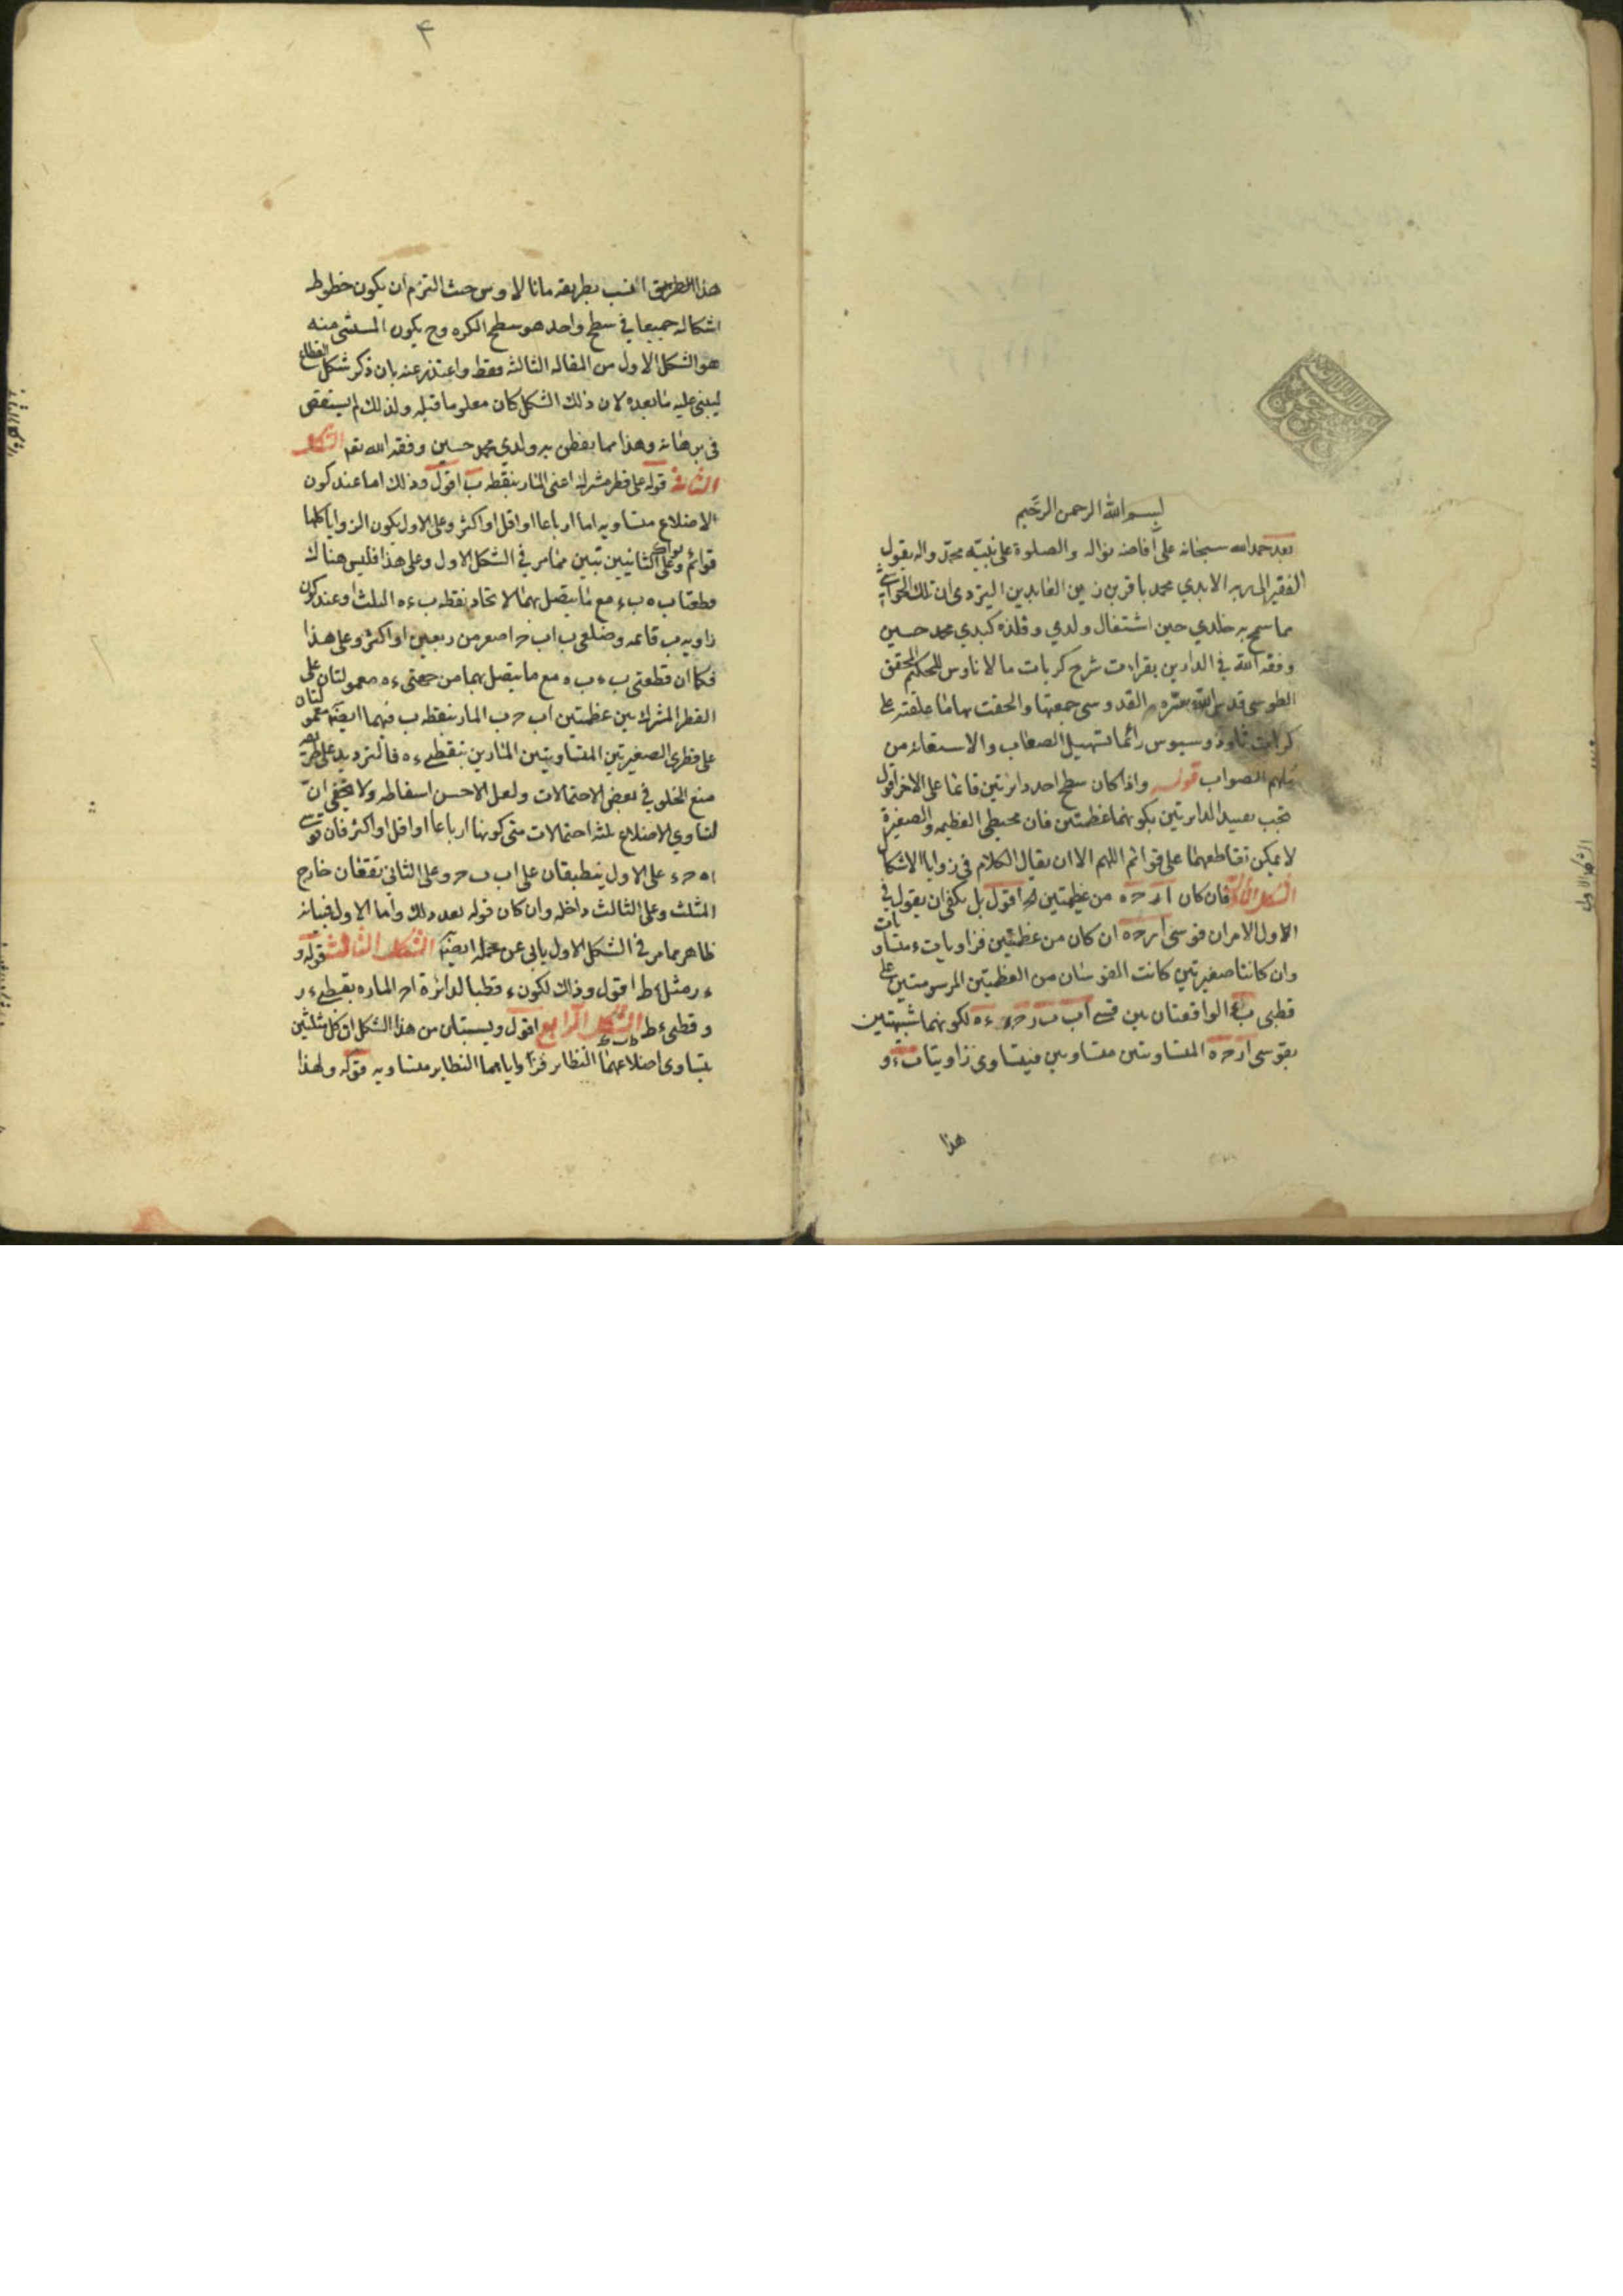 بسم الله الرحمن الرحيم
بعد حمد الله سبحانه على أفاضه نواله والصلوة على نبيه محمد واله يقول
الفقير الى ربه الابدي محمد باقر بن زين العابدين اليزدي ان تلك الحواشي
مما سمح به خلدي حين اشتغال ولدي وفلذه كبدي محمد حسين
وفقه الله في الدارين بقراءت شرح كريات مالاناوس للحكيم المحقق
الطوسي قدس الله سره القدوسي جمعتها والحقت بها ما علقته على
كريات ثاوذوسيوس رائما تسهيل الصعاب والاستعانه من
ملهم الصواب قوله واذا كان سطح احد دائرتين قائما على الاخر اقول
يجب تقييد الدايرتين بكونهما عظمتين فان محيطي العظيمه والصغيرة
لا يمكن تقاطعهما على قوائم اللهم الا ان يقال الكلام في زوايا الاشكال
الشكل الاول فان كان ا ر ح ه من عظيمتين اقول بل يكفي ان يقول في
الاول الامران قوسي ا ر ح ه ان كان من عظمتين فزاويا ب ء متساويات
وان كانتا صغيرتين كانت القوسان من العظمتين المرسومتين على
قطبي ب ء الواقعتان بين قسي اب ب ر ح ء ء ه لكونهما شبيهتين
بقوسي ا ر ح ه المتساويتين متساويين فيتساوى زاويتا ب ء و
هذا
الشكل الاول
۴
هذا الطريق انسب بطريقه مانالاوس حيث التزم ان يكون خطوط
اشكاله جميعا في سطح واحد هو سطح الكره وح يكون المستثنى منه
هو الشكل الاول من المقاله الثالثه فقط واعتذر عنه بان ذكر شكل القطاع
ليبني عليه ما بعده لان ذلك الشكل كان معلوما قبله ولذلك لم يستقص
في برهانه وهذا مما تفطن به ولدي محمد حسين وفقه الله تعم الشكل
الثاني قوله على قطر مشترك اعني المار بنقطه ب اقول وذلك اما عند كون
الاضلاع متساويه اما ارباعا او اقل او اكثر وعلى الاول يكون الزوايا كلها
قوائم وعلى الثانيين تبين مما مر في الشكل الاول وعلى هذا فليس هناك
قطعتا ب ه ب ء مع ما يتصل بهما لاتحاد نقطه ب ء ه الثلث او عند كون
زاويه ب قائمه وضلعي ب اب ح اصغر من ربعين او اكثر وعلى هذا
فكما ان قطعتي ب ء ب ه مع ما يتصل بهما من جهتي ء ه معمولتان على
القطر المشترك بين عظمتين اب ح ب المار بنقطه ب فهما ايضا معمولتان
على قطري الصغيرتين المتساويتين المارين بنقطتي ء ه فالترديد على طريق
منع الخلو في بعض الاحتمالات ولعل الاحسن اسقاطه ولا يخفى ان
لتساوي الاضلاع ثلثه احتمالات متى كونها ارباعا او اقل او اكثر فان قوسي
ا ه ح ء على الاول ينطبقان على اب ب ح وعلى الثاني تقعان خارج
المثلث وعلى الثالث داخله وان كان قوله بعد ذلك واما الاول فبيانه
ظاهر مما مر في الشكل الاول يابى عن محمله ايضا الشكل الثالث قوله و
ء ر مثل ء ط اقول وذلك لكون ء قطبا لدائرة ا ح الماره بقطبي ء ر
وقطبي ء ط الشكل الرابع اقول ويستبان من هذا الشكل ان كل مثلثين
يتساوى اضلاعهما النظاير فزاواياهما النظاير متساويه قوله ولهذا